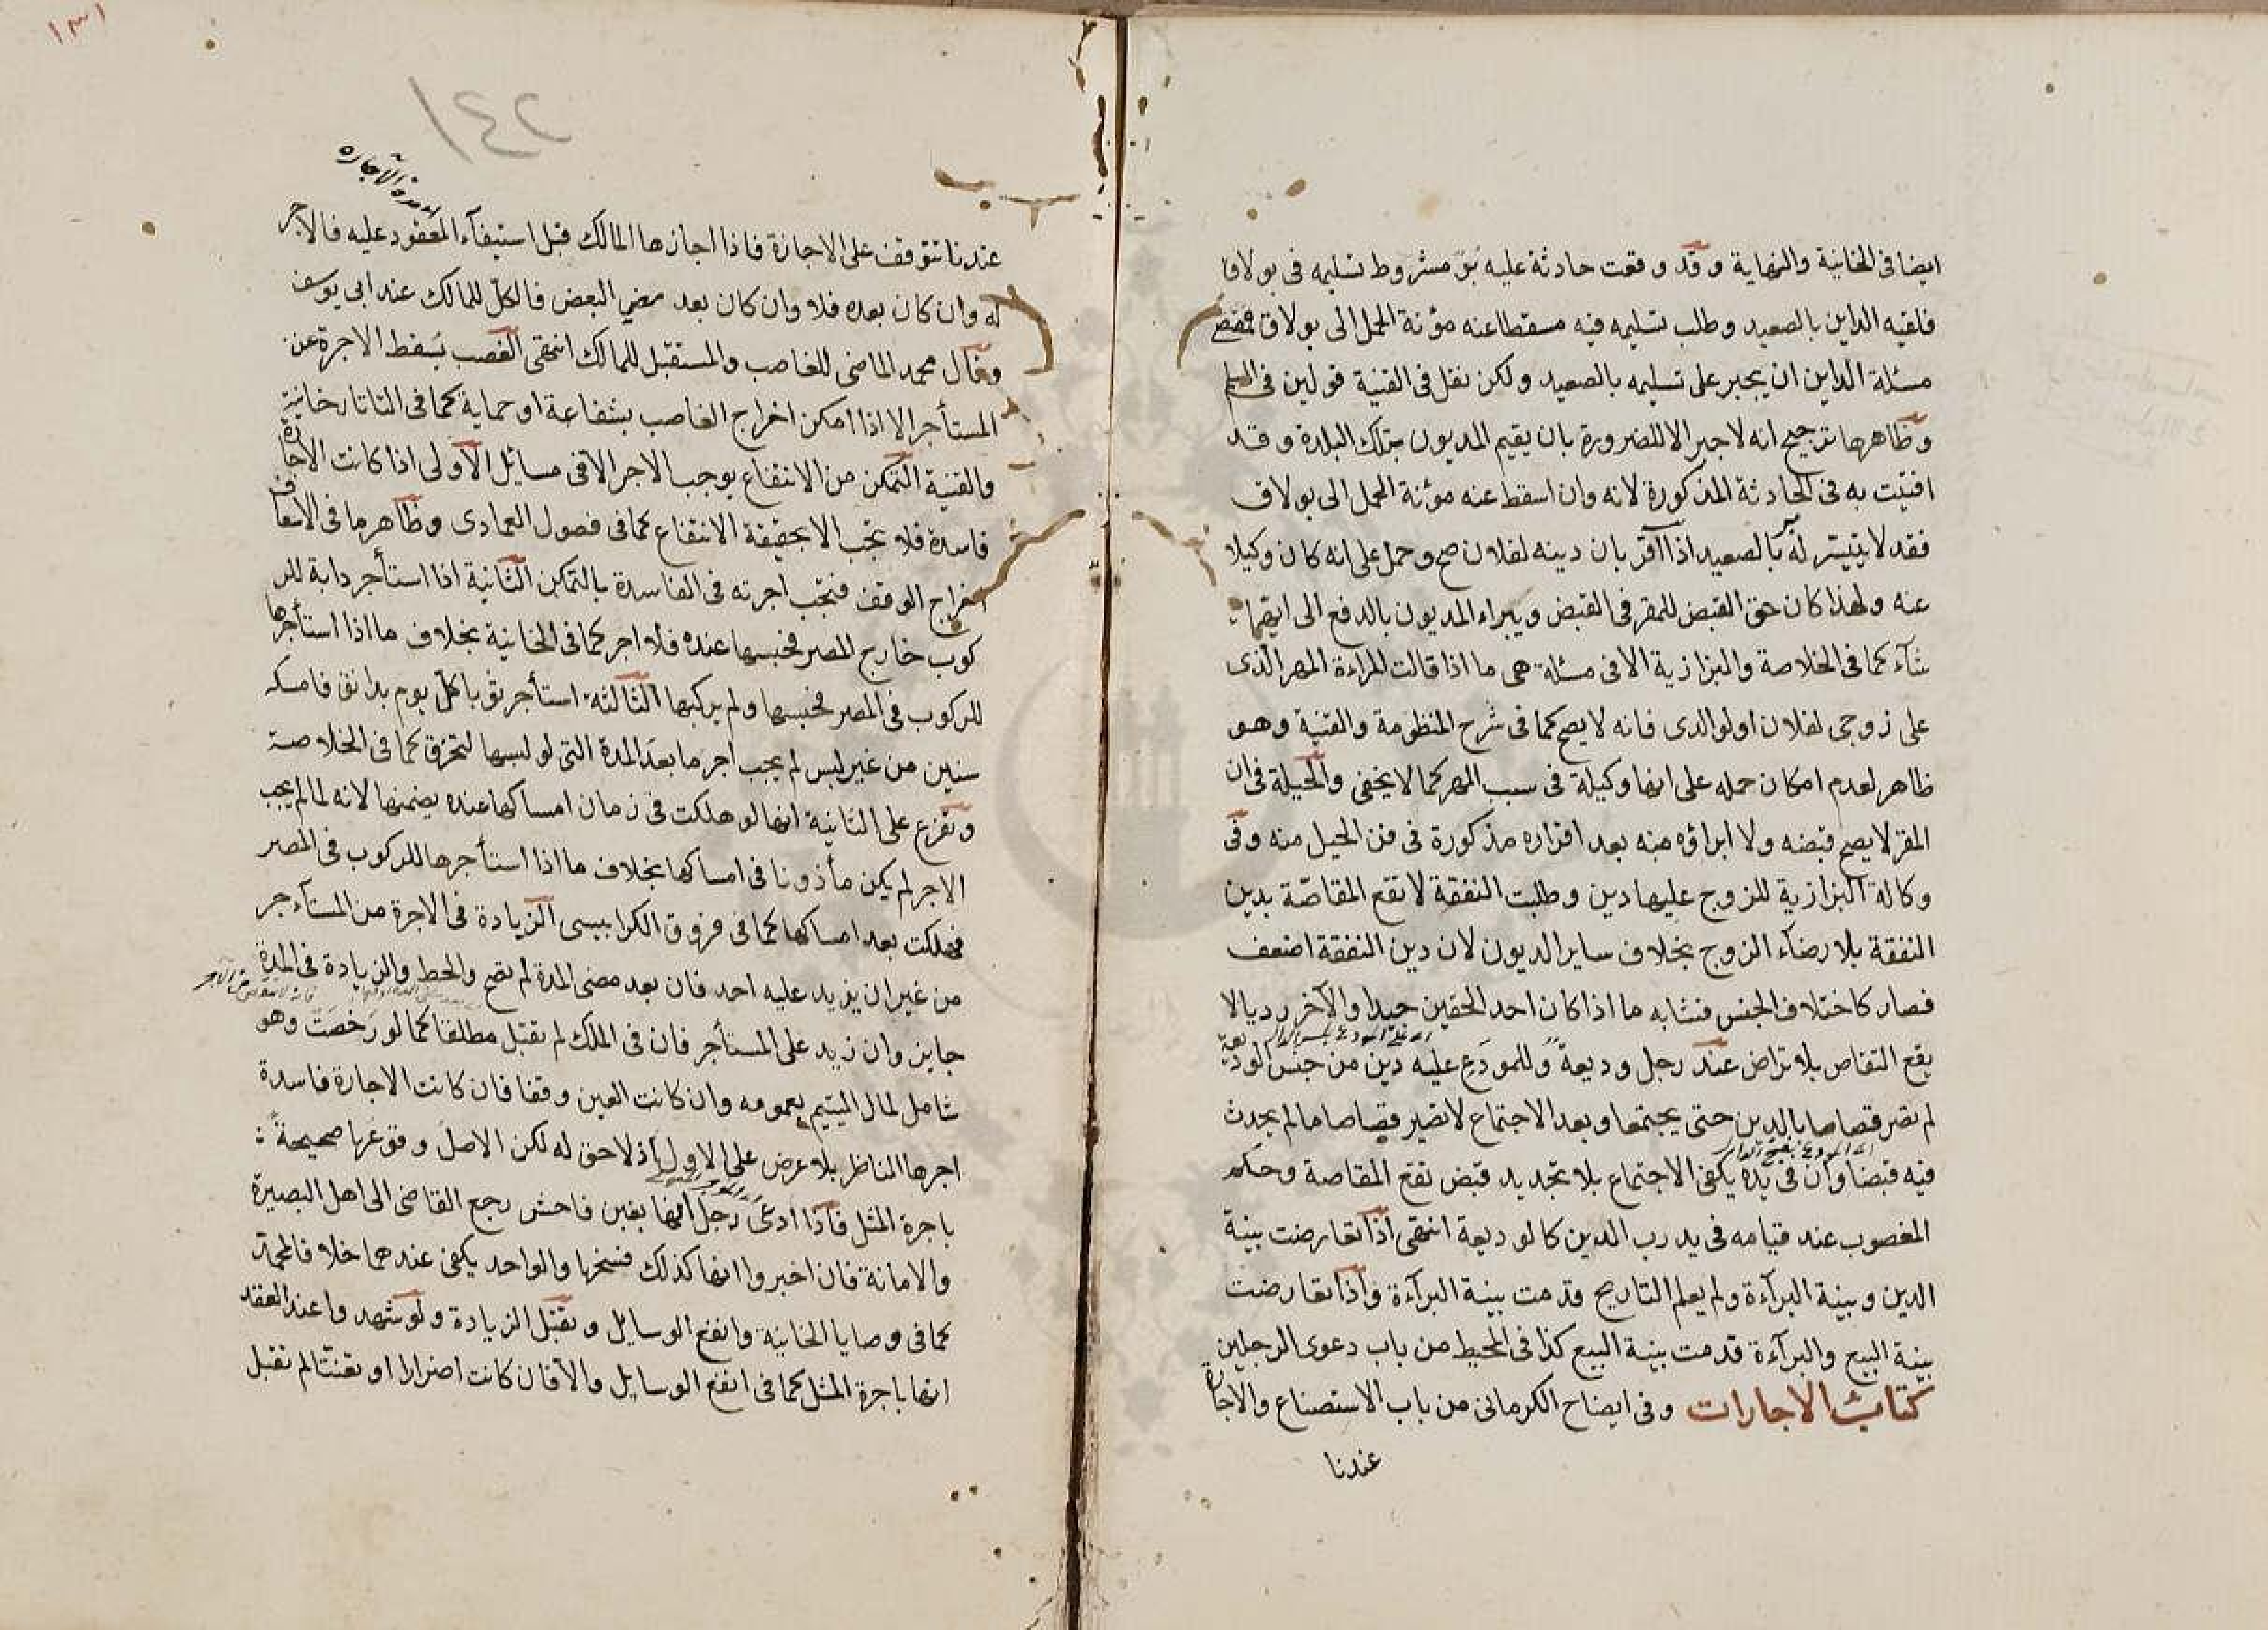 ايضا فى الخانية والنهاية وقد وقعت حادثة عليه بُرّ مشروط تسليمه فى بولاق
فلقيه الداين بالصعيد وطلب تسليمه فيه مسقطا عنه مؤنة الحمل الى بولاق فمقتضى
مسئلة الداين ان يجبر على تسليمه بالصعيد ولكن نقل فى القنية قولين فى السلم
وظاهرها ترجيح انه لا جبر الا للضرورة بان يقيم المديون بتلك البلدة وقد
افتيت به فى الحادثة المذكورة لانه وان اسقط عنه مؤنة الحمل الى بولاق
فقد لا يتيسر له بر بالصعيد اذا اقر بان دينه لفلان صح وحمل على انه كان وكيلا
عنه ولهذا كان حق القبض للمقر فى القبض ويبراء المديون بالدفع الى ايهما
شآء كما فى الخلاصة والبزازية الا فى مسئلة هى ما اذا قالت المراءة المهر الذى
على زوجى لفلان او لوالدى فانه لا يصح كما فى شرح المنظومة والقنية وهو
ظاهر لعدم امكان حمله على انها وكيلة فى سبب المهر كما لا يخفى والحيلة فى ان
المقر لا يصح قبضه ولا ابراؤه منه بعد اقراره مذكورة فى فن الحيل منه وفى
وكالة البزازية للزوج عليها دين وطلبت النفقة لا تقع المقاصّة بدين
النفقة بلا رضآء الزوج بخلاف ساير الديون لان دين النفقة اضعف
فصار كاختلاف الجنس فشابه ما اذا كان احد الحقين جيدا والآخر رديا لا
يقع التقاص بلا تراض عند رجل وديعة وللمودَع عليه دين من جنس الوديعة
لم تصر قصاصا بالدين حتى يجتمعا وبعد الاجتماع لا تصير قصاصا ما لم يحدث
فيه قبضا وان فى يده يكفى الاجتماع بلا تجديد قبض تقع المقاصة وحكم
المغصوب عند قيامه فى يد رب الدين كالوديعة انتهى اذا تعارضت بينة
الدين وبينة البرآءة ولم يعلم التاريخ قدمت بينة البرآءة واذا تعارضت
بينة البيع والبرآءة قدمت بينة البيع كذا فى المحيط من باب دعوى الرجلين
كتاب الاجارات وفى ايضاح الكرمانى من باب الاستصناع والاجارة
عندنا
١٣١
١٤٢
عندنا تتوقف على الاجازة فاذا اجازها المالك قبل استيفآء المعقود عليه فالاجر
له وان كان بعده فلا وان كان بعد مضي البعض فالكل للمالك عند ابى يوسف
وقال محمد الماضى للغاصب والمستقبل للمالك انتهى الغصب يُسقط الاجرة عن
المستأجر الا اذا امكن اخراج الغاصب بشفاعة او حماية كما فى التاتارخانية
والقنية التمكن من الانتفاع يوجب الاجر الا فى مسائل الاولى اذا كانت الاجارة
فاسدة فلا تجب الا بحقيقة الانتفاع كما فى فصول العمادى وظاهر ما فى الاسعاف
اخراج الوقف فتجب اجرته فى الفاسدة بالتمكن الثانية اذا استأجر دابة للر
كوب خارج المصر فحبسها عنده فلا اجر كما فى الخانية بخلاف ما اذا استأجرها
للركوب فى المصر فحبسها ولم يركبها الثالثة استأجر ثوبا كل يوم بدانق فامسكه
سنين من غير لبس لم يجب اجر ما بعد المدة التى لو لبسها لتخرق كما فى الخلاصة
وتفرع على الثانية انها لو هلكت فى زمان امساكها عنده يضمنها لانه لما لم يجب
الاجر لم يكن مأذونا فى امساكها بخلاف ما اذا استأجرها للركوب فى المصر
فهلكت بعد امساكها كما فى فروق الكرابيسى الزيادة فى الاجرة من المستأجر
من غير ان يزيد عليه احد فان بعد مضى المدة لم تصح والحط والزيادة فى المدة
جايز وان زيد على المستأجر فان فى الملك لم تقبل مطلقا كما لو رَخصَت وهو
شامل لمال اليتيم بعمومه وان كانت العين وقفا فان كانت الاجارة فاسدة
اجرها الناظر بلا عرض على الاول اذ لا حق له لكن الاصل وقوعها صحيحة
باجرة المثل فاذا ادعى رجل انها بغبن فاحش رجع القاضى الى اهل البصيرة
والامانة فان اخبروا انها كذلك فسخها والواحد يكفى عندهما خلافا لمحمد
كما فى وصايا الخانية وانفع الوسايل وتقبل الزيادة ولو شهدوا عند العقد
انها باجرة المثل كما فى انفع الوسايل والا فان كانت اضرارا او تعنتا لم تقبل